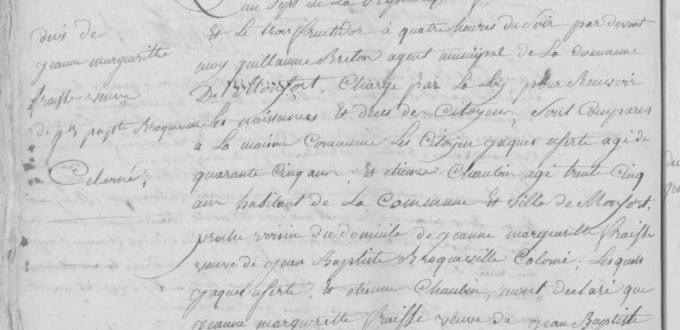 decés de
jeanne margueritte
fraisse veuve
de jean baptiste Broqueville
Colomé.
an sept de La Republique
Et le trois fructidor à quatre heures du Soir par devant
moy guillaume Breton agent municipal de La Commune
De Monfort, Chargé par La Loy, pour Recevoir
Les naissances Et deces des Citoyens, Sont Comparus
a La maison Commune Les Citoyen jaques agé de
quarante Cinq ans, et etienne Chaubin agé trente Cinq
ans habitant de La Commune Et Ville de Monfort,
proche voisin du domicile de jeanne margueritte fraisse
veuve de jean Baptiste Broqueville Colomé; Lesquels
jaques Et etienne Chaubin, mont declaré que
jeanne margueritte fraisse veuve de jean Baptiste